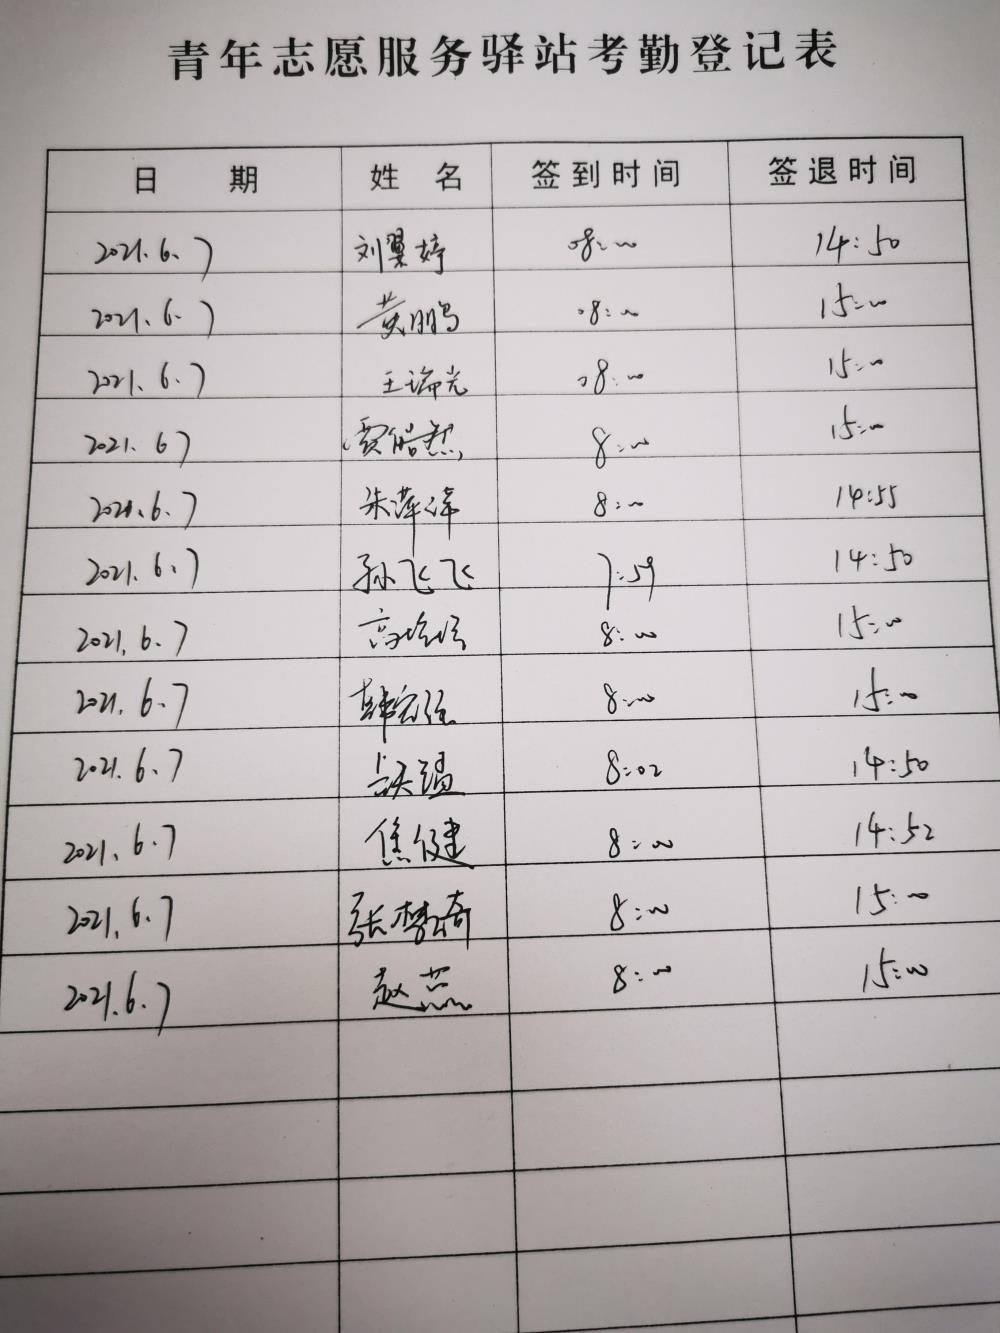 青年志愿服务驿站考勤登记表
日 期 姓 名 签到时间 签退时间
2021.6.7 刘翼婷 08:00 14:50
2021.6.7 黄鹏鸟 08:00 15:00
2021.6.7 王瑞光 08:00 15:00
2021.6.7 贾皓然 8:00 15:00
2021.6.7 朱萍萍 8:00 14:55
2021.6.7 孙飞飞 7:59 14:50
2021.6.7 8:00 15:00
2021.6.7 韩宏强 8:00 15:00
2021.6.7 8:02 14:50
2021.6.7 焦健 8:00 14:52
2021.6.7 张梦奇 8:00 15:00
2021.6.7 赵蕊 8:00 15:00